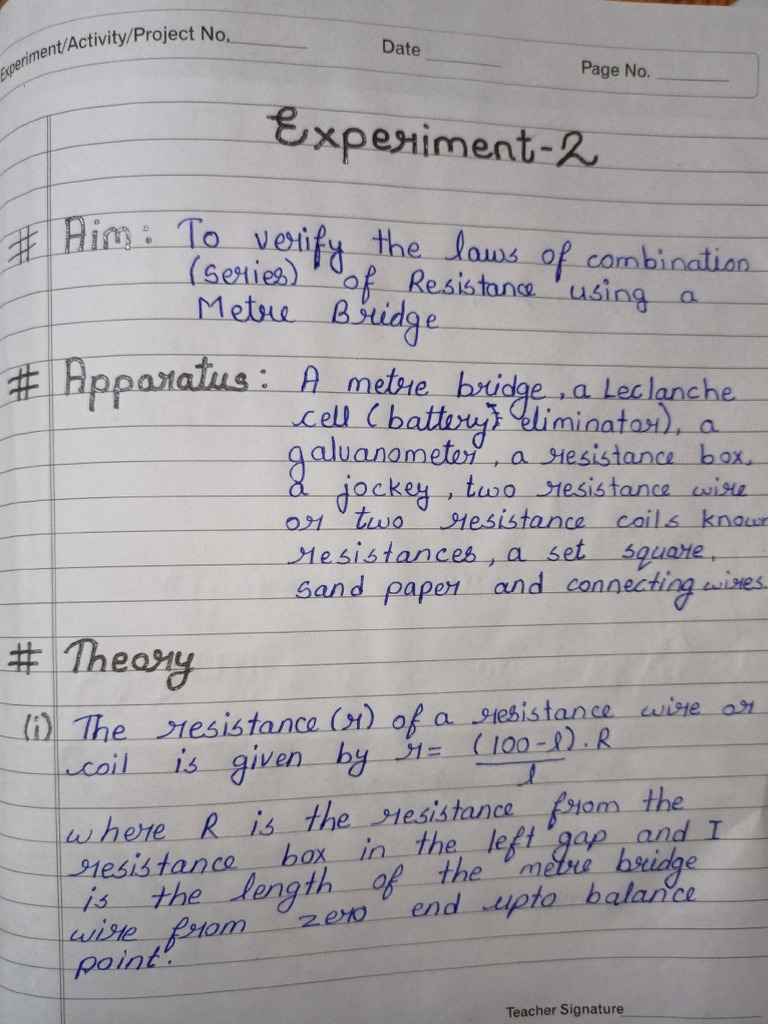 Experiment/Activity/Project No.
Date
Page No.
Experiment-2
# Aim: To verify the laws of combination
(series) of Resistance using a
Metre Bridge
# Apparatus: A metre bridge, a Leclanche
cell (battery eliminator), a
galvanometer, a resistance box,
a jockey, two resistance wire
or two resistance coils known
resistances, a set square,
sand paper and connecting wires
# Theory
(i) The resistance (r) of a resistance wire or
coil is given by r = (100-l).R / l
where R is the resistance from the
resistance box in the left gap and I
is the length of the metre bridge
wire from zero end upto balance
point.
Teacher Signature